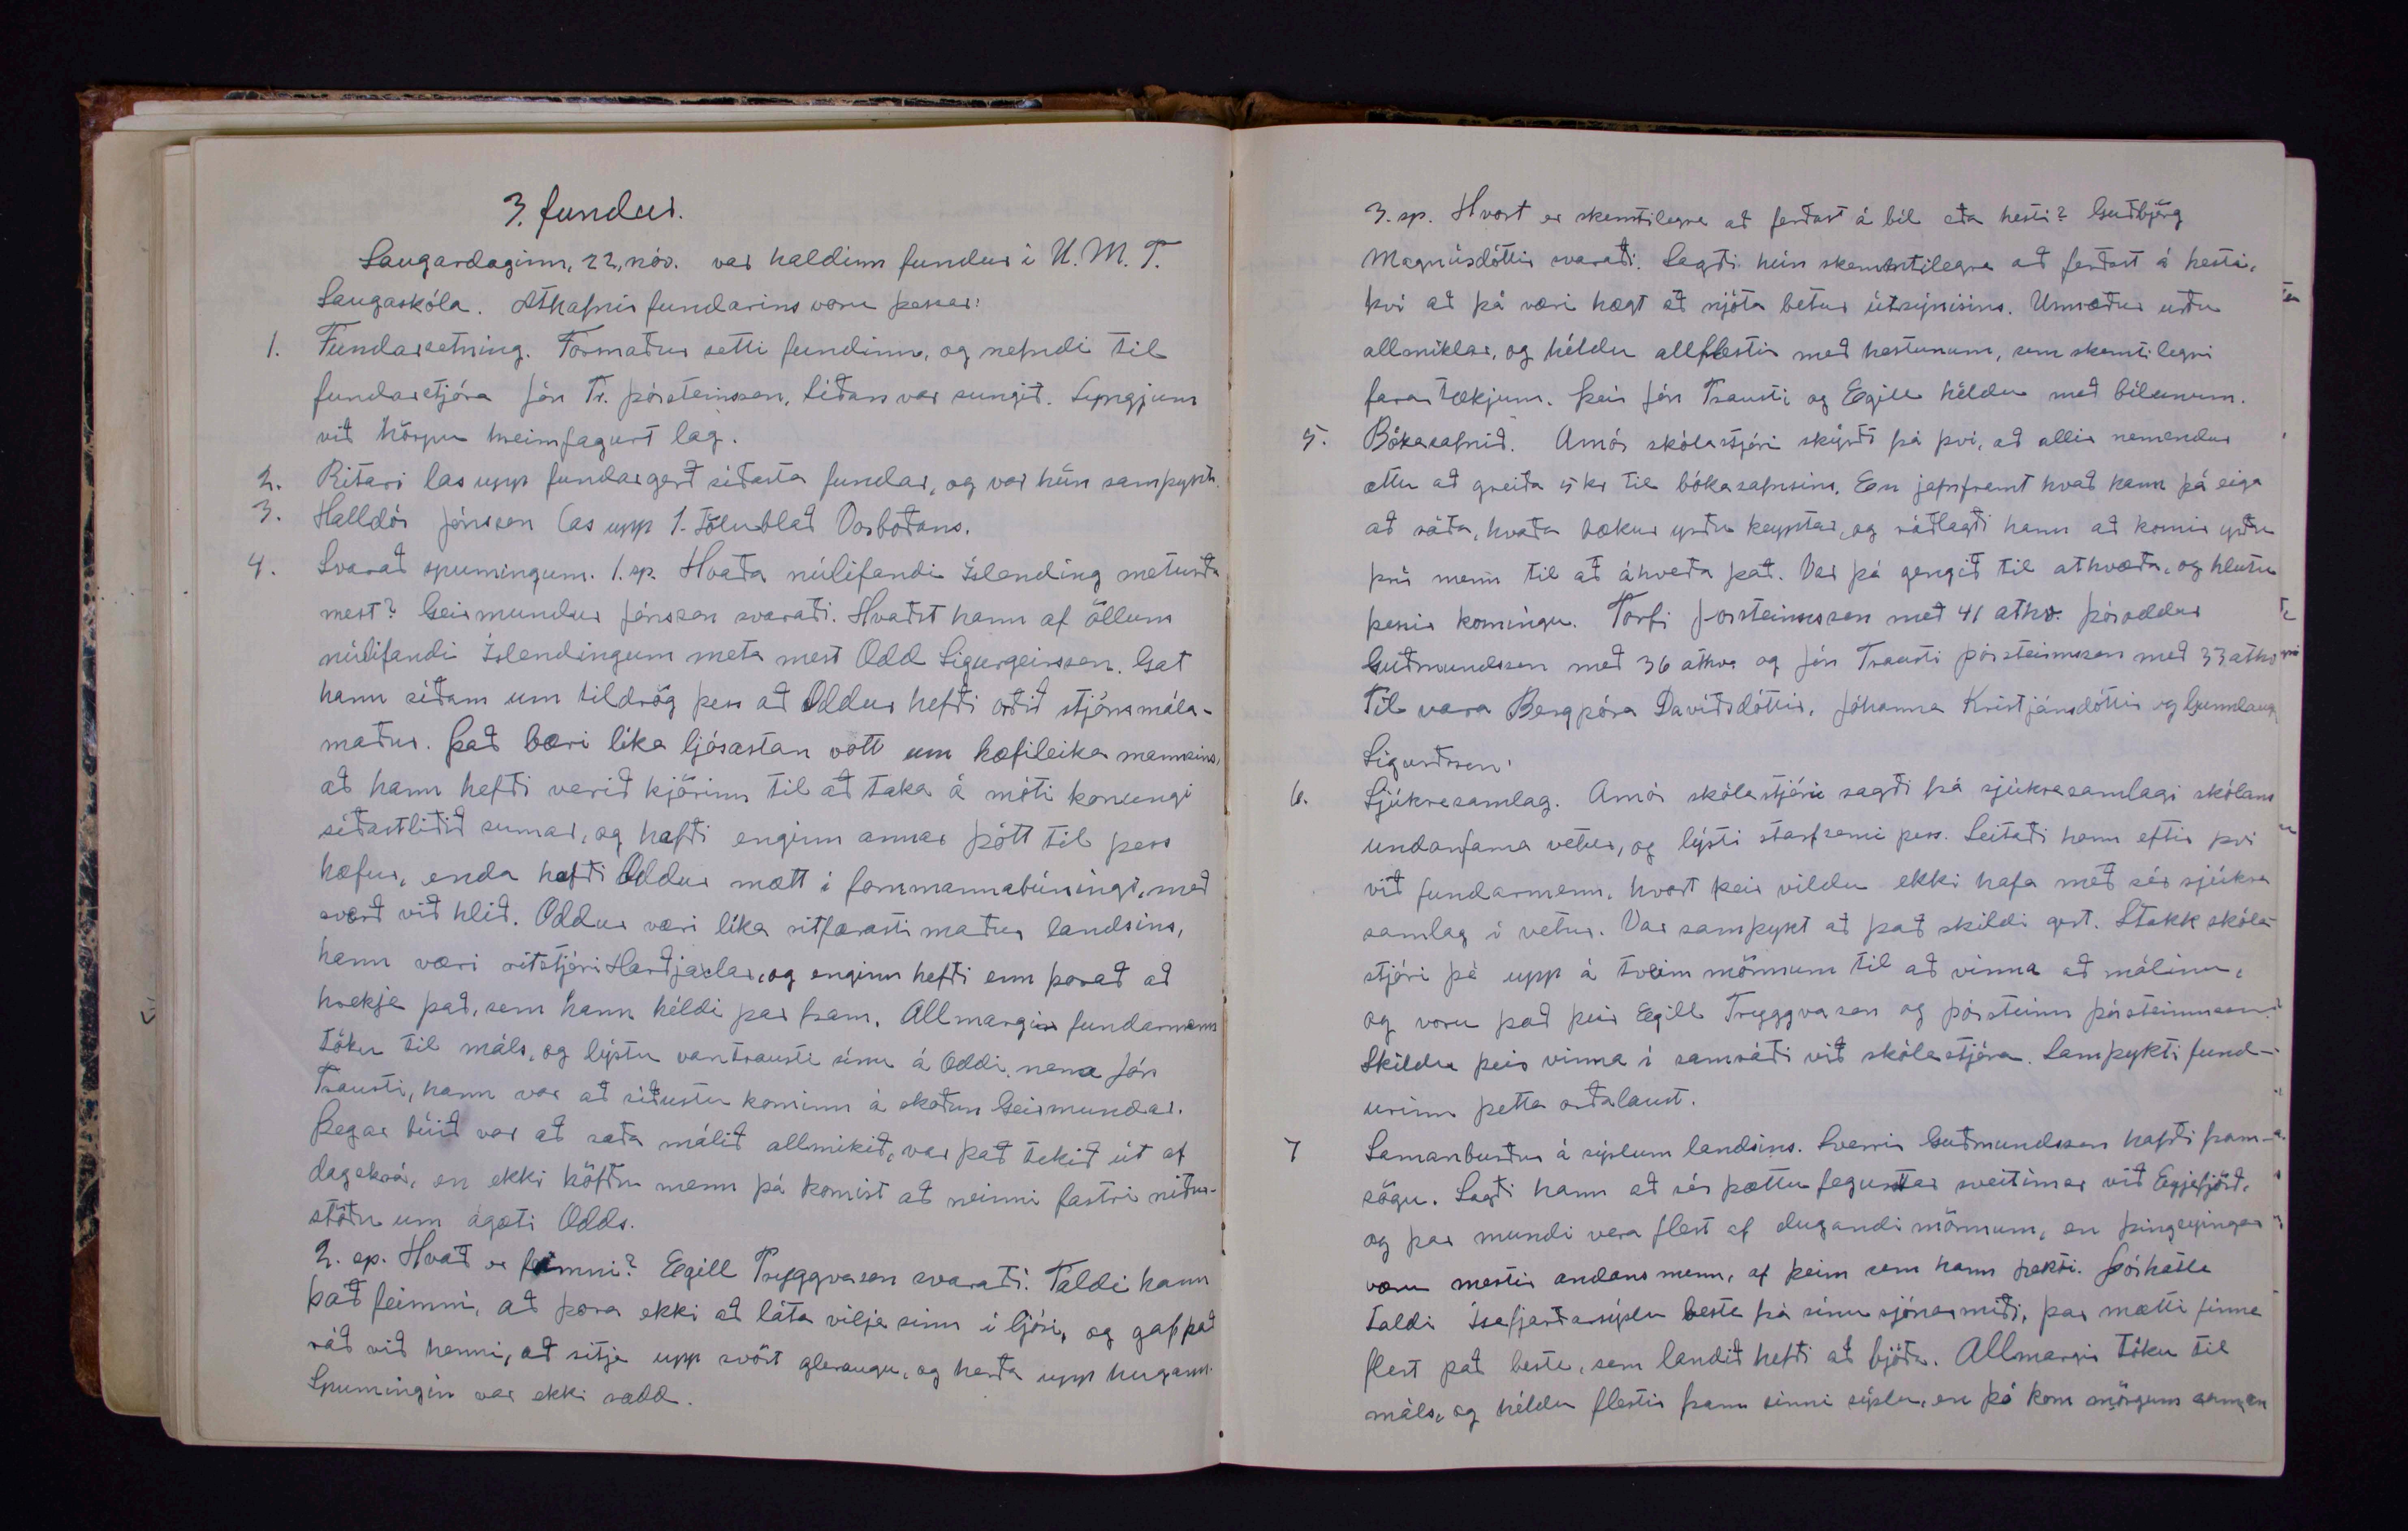 3. fundur.
Laugardaginn, 22, nóv. var haldinn fundur í U. M. T.
Laugaskóla. Athafnir fundarins voru þessar:
1. Fundarsetning. Formaður setti fundinn, og nefndi til
fundarstjóra Jón Tr. Þórsteinsson, Síðan var sungið. Syngjum
við hörpu hreimfagurt lag.
2. Ritari las upp fundargerð síðasta fundar, og var hún samþykt.
3. Halldór Jónsson las upp 1. tölublað Vorboðans.
4. Svarað spurningum. 1. sp. Hvaða núlifandi Íslending meturðu
mest? Geirmundur Jónsson svaraði. Hvaðst hann af öllum
núlifandi Íslendingum meta mest Odd Sigurgeirsson. Gat
hann síðam um tildrög þess að Oddur hefði orðið stjórnmála-
maður. Það bæri líka ljósastan vott um hæfileika mannsins,
að hann hefði verið kjörinn til að taka á móti konungi
síðastliðið sumar, og hefði enginn annar þótt til þess
hæfur, enda hafði Oddur mætt í fornmannabúningi, með
sverð við hlið. Oddur væri líka ritfærasti maður landsins,
hann væri ritstjóri Harðjaxlar, og enginn hefði enn þorað að
hrekja það, sem hann héldi þar fram. Allmargir fundarmenn
tóku til máls, og lýstu vantrausti sínu á Oddi. nema Jón
Trausti, hann var að síðustu kominn á skoðun Geirmundar.
Þegar búið var að ræða málið allmikið, var það tekið út af
dagskrá, en ekki höfðu menn þá komist að neinni fastri niður-
stöðu um ágæti Odds.
2. sp. Hvað er feimni? Egill Tryggvason svaraði. Taldi hann
það feimni, að þora ekki að láta vilja sinn í ljósi, og gaf það
ráð við henni, að setja upp svört gleraugu, og herða upp hugann.
Spurningin var ekki rædd.
3. sp. Hvort er skemtilegra að ferðast á bíl eða hesti? Guðbjörg
Magnúsdóttir svaraði. Sagði hún skemmtilegra að ferðast á hesti,
því að þá væri hægt að njóta betur útsýnisins. Umræður urðu
allmiklar, og héldu allflestir með hestunum, sem skemtilegri
farartækjum. Þeir Jón Trausti og Egill héldu með bílunum.
5. Bókasafnið. Arnór skólastjóri skýrði frá því, að allir nemendur
ættu að greiða 5 kr til bókasafnsins. En jafnframt kvað hann þá eiga
að ráða, hvaða bækur yrðu keyptar, og ráðlagði hann að kosnir yrðu
þrír menn til að ákveða það. Var þá gengið til atkvæða, og hlutu
þessir kosningu. Torfi Þorsteinsson með 41 atkv. Þóroddur
Guðmundsson með 36 atkv og Jón Trausti Þórsteinsson með 33 atkv
Til vara Bergþóra Davíðsdóttir, Jóhanna Kristjánsdóttir og Gunnlaug
Sigurðsson.
6. Sjúkrasamlag. Arnór skólastjóri sagði frá sjúkrasamlagi skólans
undanfarna vetur, og lýsti starfsemi þess. Leitaði hann eftir því
við fundarmenn, hvort þeir vildu ekki hafa með sér sjúkra
samlag í vetur. Var samþykt að það skildi gert. Stakk skóla-
stjóri þá upp á tveim mönnum til að vinna að málinu,
og voru það þeir Egill Tryggvason og Þórsteinn Þórsteinsson.
Skildu þeir vinna í samráði við skólastjóra. Samþykti fund-
urinn þetta orðalaust.
7 Samanburður á sýslum landsins. Sverrir Guðmundsson hafði fram-
sögu. Sagði hann að sér þættu fegurstar sveitirnar við Eyjafjörð,
og þar mundi vera flest af dugandi mönnum, en Þingeyingar
væru mestir andans menn, af þeim sem hann þekti. Þórhalla
taldi Ísafjarðarsýslu beste frá sínu sjónarmiði, þar mætti finna
flest það beste, sem landið hefði að bjóða. Allmargir tóku til
máls, og héldu flestir fram sinni sýslu, en þó kom mörgum saman